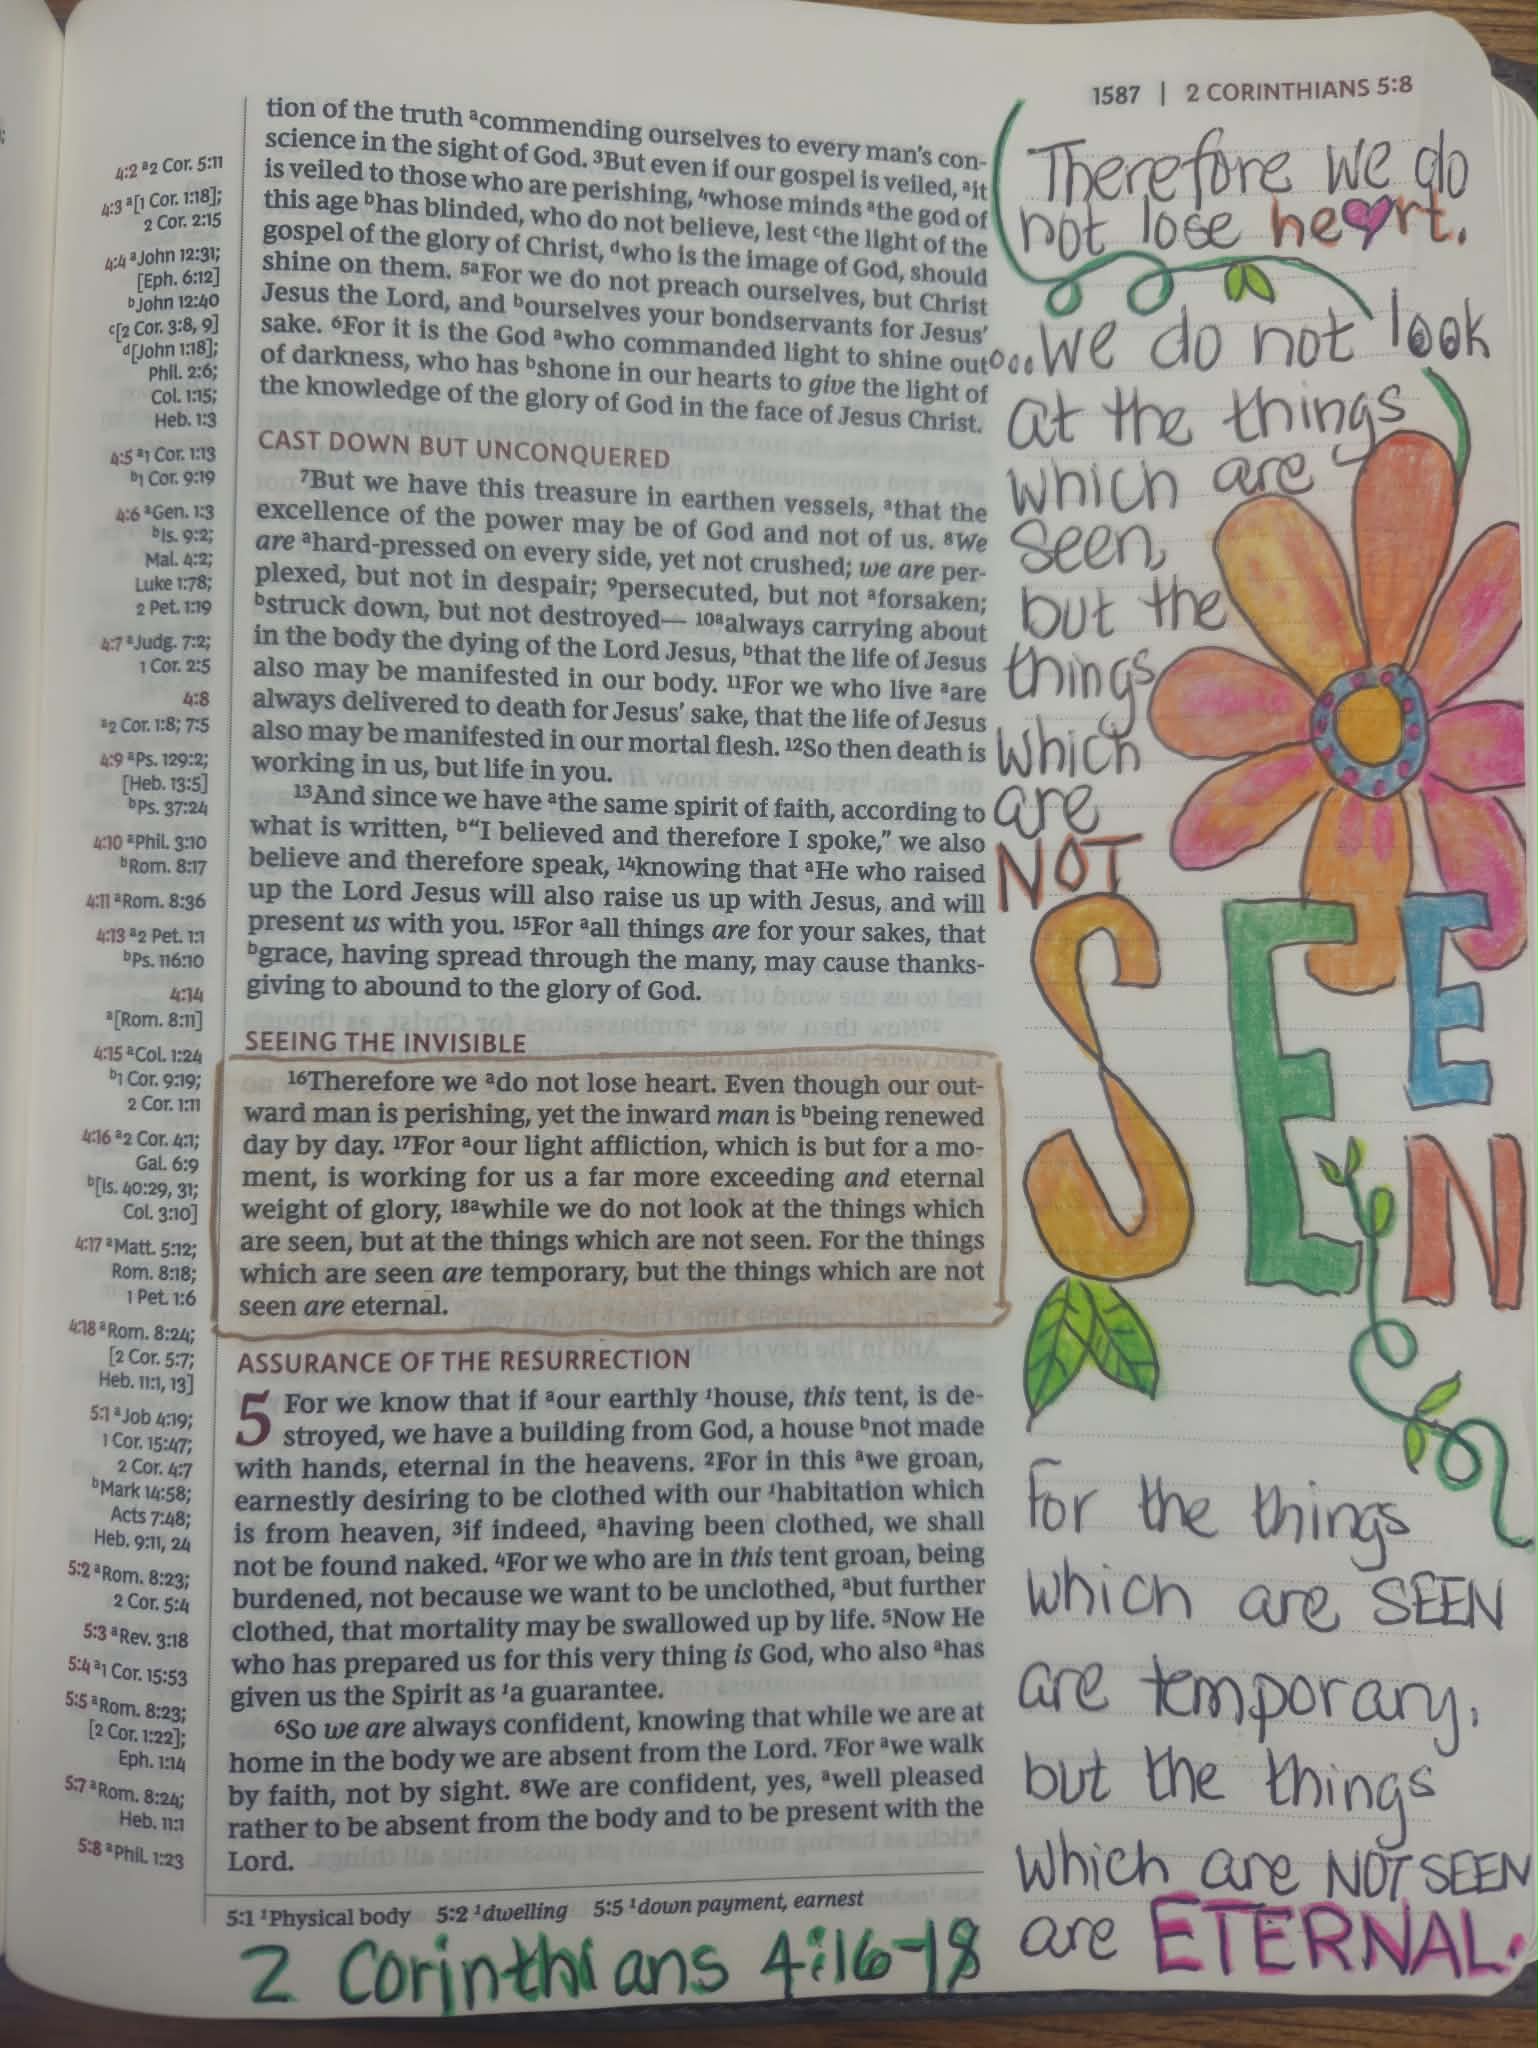 1587 | 2 CORINTHIANS 5:8
4:2 a2 Cor. 5:11
4:3 a[1 Cor. 1:18];
2 Cor. 2:15
4:4 aJohn 12:31;
[Eph. 6:12]
bJohn 12:40
c[2 Cor. 3:8, 9]
d[John 1:18];
Phil. 2:6;
Col. 1:15;
Heb. 1:3
4:5 a1 Cor. 1:13
b1 Cor. 9:19
4:6 aGen. 1:3
bIs. 9:2;
Mal. 4:2;
Luke 1:78;
2 Pet. 1:19
4:7 aJudg. 7:2;
1 Cor. 2:5
4:8
a2 Cor. 1:8; 7:5
4:9 aPs. 129:2;
[Heb. 13:5]
bPs. 37:24
4:10 aPhil. 3:10
bRom. 8:17
4:11 aRom. 8:36
4:13 a2 Pet. 1:1
bPs. 116:10
4:14
a[Rom. 8:11]
4:15 aCol. 1:24
b1 Cor. 9:19;
2 Cor. 1:11
4:16 a2 Cor. 4:1;
Gal. 6:9
b[Is. 40:29, 31;
Col. 3:10]
4:17 aMatt. 5:12;
Rom. 8:18;
1 Pet. 1:6
4:18 aRom. 8:24;
[2 Cor. 5:7;
Heb. 11:1, 13]
5:1 aJob 4:19;
1 Cor. 15:47;
2 Cor. 4:7
bMark 14:58;
Acts 7:48;
Heb. 9:11, 24
5:2 aRom. 8:23;
2 Cor. 5:4
5:3 aRev. 3:18
5:4 a1 Cor. 15:53
5:5 aRom. 8:23;
[2 Cor. 1:22];
Eph. 1:14
5:7 aRom. 8:24;
Heb. 11:1
5:8 aPhil. 1:23
tion of the truth acommending ourselves to every man's con-
science in the sight of God. 3But even if our gospel is veiled, ait
is veiled to those who are perishing, 4whose minds athe god of
this age bhas blinded, who do not believe, lest cthe light of the
gospel of the glory of Christ, dwho is the image of God, should
shine on them. 5aFor we do not preach ourselves, but Christ
Jesus the Lord, and bourselves your bondservants for Jesus'
sake. 6For it is the God awho commanded light to shine out
of darkness, who has bshone in our hearts to give the light of
the knowledge of the glory of God in the face of Jesus Christ.
CAST DOWN BUT UNCONQUERED
7But we have this treasure in earthen vessels, athat the
excellence of the power may be of God and not of us. 8We
are ahard-pressed on every side, yet not crushed; we are per-
plexed, but not in despair; 9persecuted, but not aforsaken;
bstruck down, but not destroyed— 10aalways carrying about
in the body the dying of the Lord Jesus, bthat the life of Jesus
also may be manifested in our body. 11For we who live aare
always delivered to death for Jesus' sake, that the life of Jesus
also may be manifested in our mortal flesh. 12So then death is
working in us, but life in you.
13And since we have athe same spirit of faith, according to
what is written, b"I believed and therefore I spoke," we also
believe and therefore speak, 14knowing that aHe who raised
up the Lord Jesus will also raise us up with Jesus, and will
present us with you. 15For aall things are for your sakes, that
bgrace, having spread through the many, may cause thanks-
giving to abound to the glory of God.
SEEING THE INVISIBLE
16Therefore we ado not lose heart. Even though our out-
ward man is perishing, yet the inward man is bbeing renewed
day by day. 17For aour light affliction, which is but for a mo-
ment, is working for us a far more exceeding and eternal
weight of glory, 18awhile we do not look at the things which
are seen, but at the things which are not seen. For the things
which are seen are temporary, but the things which are not
seen are eternal.
ASSURANCE OF THE RESURRECTION
5 For we know that if aour earthly 1house, this tent, is de-
stroyed, we have a building from God, a house bnot made
with hands, eternal in the heavens. 2For in this awe groan,
earnestly desiring to be clothed with our 1habitation which
is from heaven, 3if indeed, ahaving been clothed, we shall
not be found naked. 4For we who are in this tent groan, being
burdened, not because we want to be unclothed, abut further
clothed, that mortality may be swallowed up by life. 5Now He
who has prepared us for this very thing is God, who also ahas
given us the Spirit as 1a guarantee.
6So we are always confident, knowing that while we are at
home in the body we are absent from the Lord. 7For awe walk
by faith, not by sight. 8We are confident, yes, awell pleased
rather to be absent from the body and to be present with the
Lord.
5:1 1Physical body 5:2 1dwelling 5:5 1down payment, earnest
2 Corinthians 4:16-18
Therefore we do
not lose heart.
...we do not look
at the things
which are
seen,
but the
things
which
are
NOT
SEEN
For the things
which are SEEN
are temporary,
but the things
which are NOT SEEN
are ETERNAL.